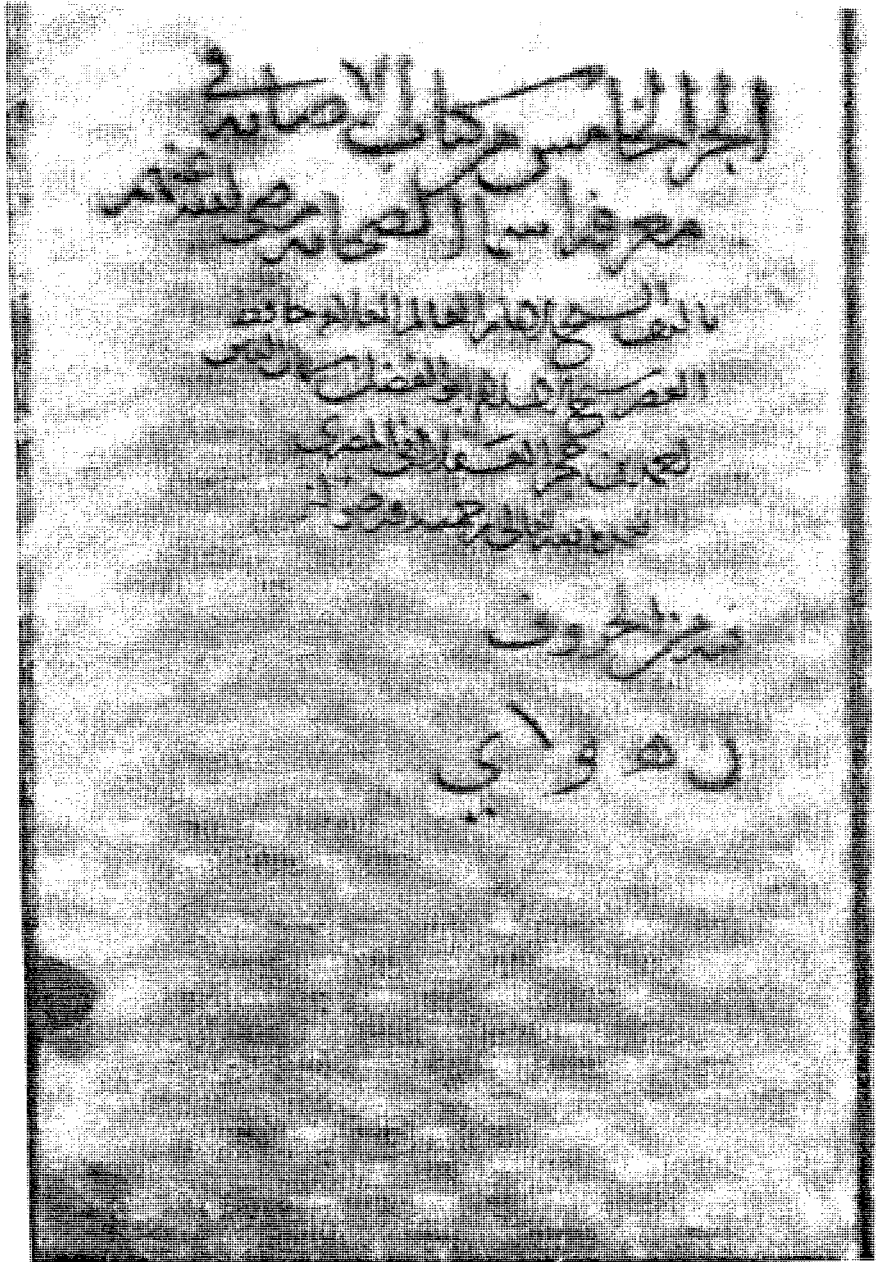 الجزء الخامس من كتاب الاصابه في
معرفة اسما الصحابه رضي الله عنهم
تاليف الشيخ الامام العالم العلامه حافظ
العصر شيخ الاسلام ابو الفضل شهاب الدين
احمد بن حجر العسقلاني المصري
الله برحمته ورضوانه
فيه من الحروف
ن ه و ا ي